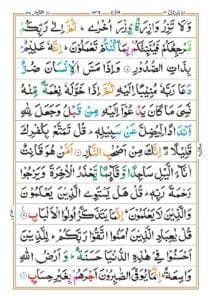 وَلَا تَزِرُ وَازِرَةٌ وِّزْرَ اُخْرٰى ؕ ثُمَّ اِلٰى رَبِّكُمْ
مَّرْجِعُكُمْ فَيُنَبِّئُكُمْ بِمَا كُنْتُمْ تَعْمَلُوْنَ ؕ اِنَّهٗ عَلِيْمٌۢ
بِذَاتِ الصُّدُوْرِ ۞ وَاِذَا مَسَّ الْاِنْسَانَ ضُرٌّ
دَعَا رَبَّهٗ مُنِيْبًا اِلَيْهِ ثُمَّ اِذَا خَوَّلَهٗ نِعْمَةً مِّنْهُ
نَسِيَ مَا كَانَ يَدْعُوْۤا اِلَيْهِ مِنْ قَبْلُ وَجَعَلَ لِلّٰهِ
اَنْدَادًا لِّيُضِلَّ عَنْ سَبِيْلِهٖ ؕ قُلْ تَمَتَّعْ بِكُفْرِكَ
قَلِيْلًا ۖ اِنَّكَ مِنْ اَصْحٰبِ النَّارِ ۞ اَمَّنْ هُوَ قَانِتٌ
اٰنَآءَ الَّيْلِ سَاجِدًا وَّقَآئِمًا يَّحْذَرُ الْاٰخِرَةَ وَيَرْجُوْا
رَحْمَةَ رَبِّهٖ ؕ قُلْ هَلْ يَسْتَوِى الَّذِيْنَ يَعْلَمُوْنَ
وَالَّذِيْنَ لَا يَعْلَمُوْنَ ؕ اِنَّمَا يَتَذَكَّرُ اُولُوا الْاَلْبَابِ ۞
قُلْ يٰعِبَادِ الَّذِيْنَ اٰمَنُوا اتَّقُوْا رَبَّكُمْ ؕ لِلَّذِيْنَ
اَحْسَنُوْا فِيْ هٰذِهِ الدُّنْيَا حَسَنَةٌ ؕ وَاَرْضُ اللّٰهِ
وَاسِعَةٌ ؕ اِنَّمَا يُوَفَّى الصّٰبِرُوْنَ اَجْرَهُمْ بِغَيْرِ حِسَابٍ ۞